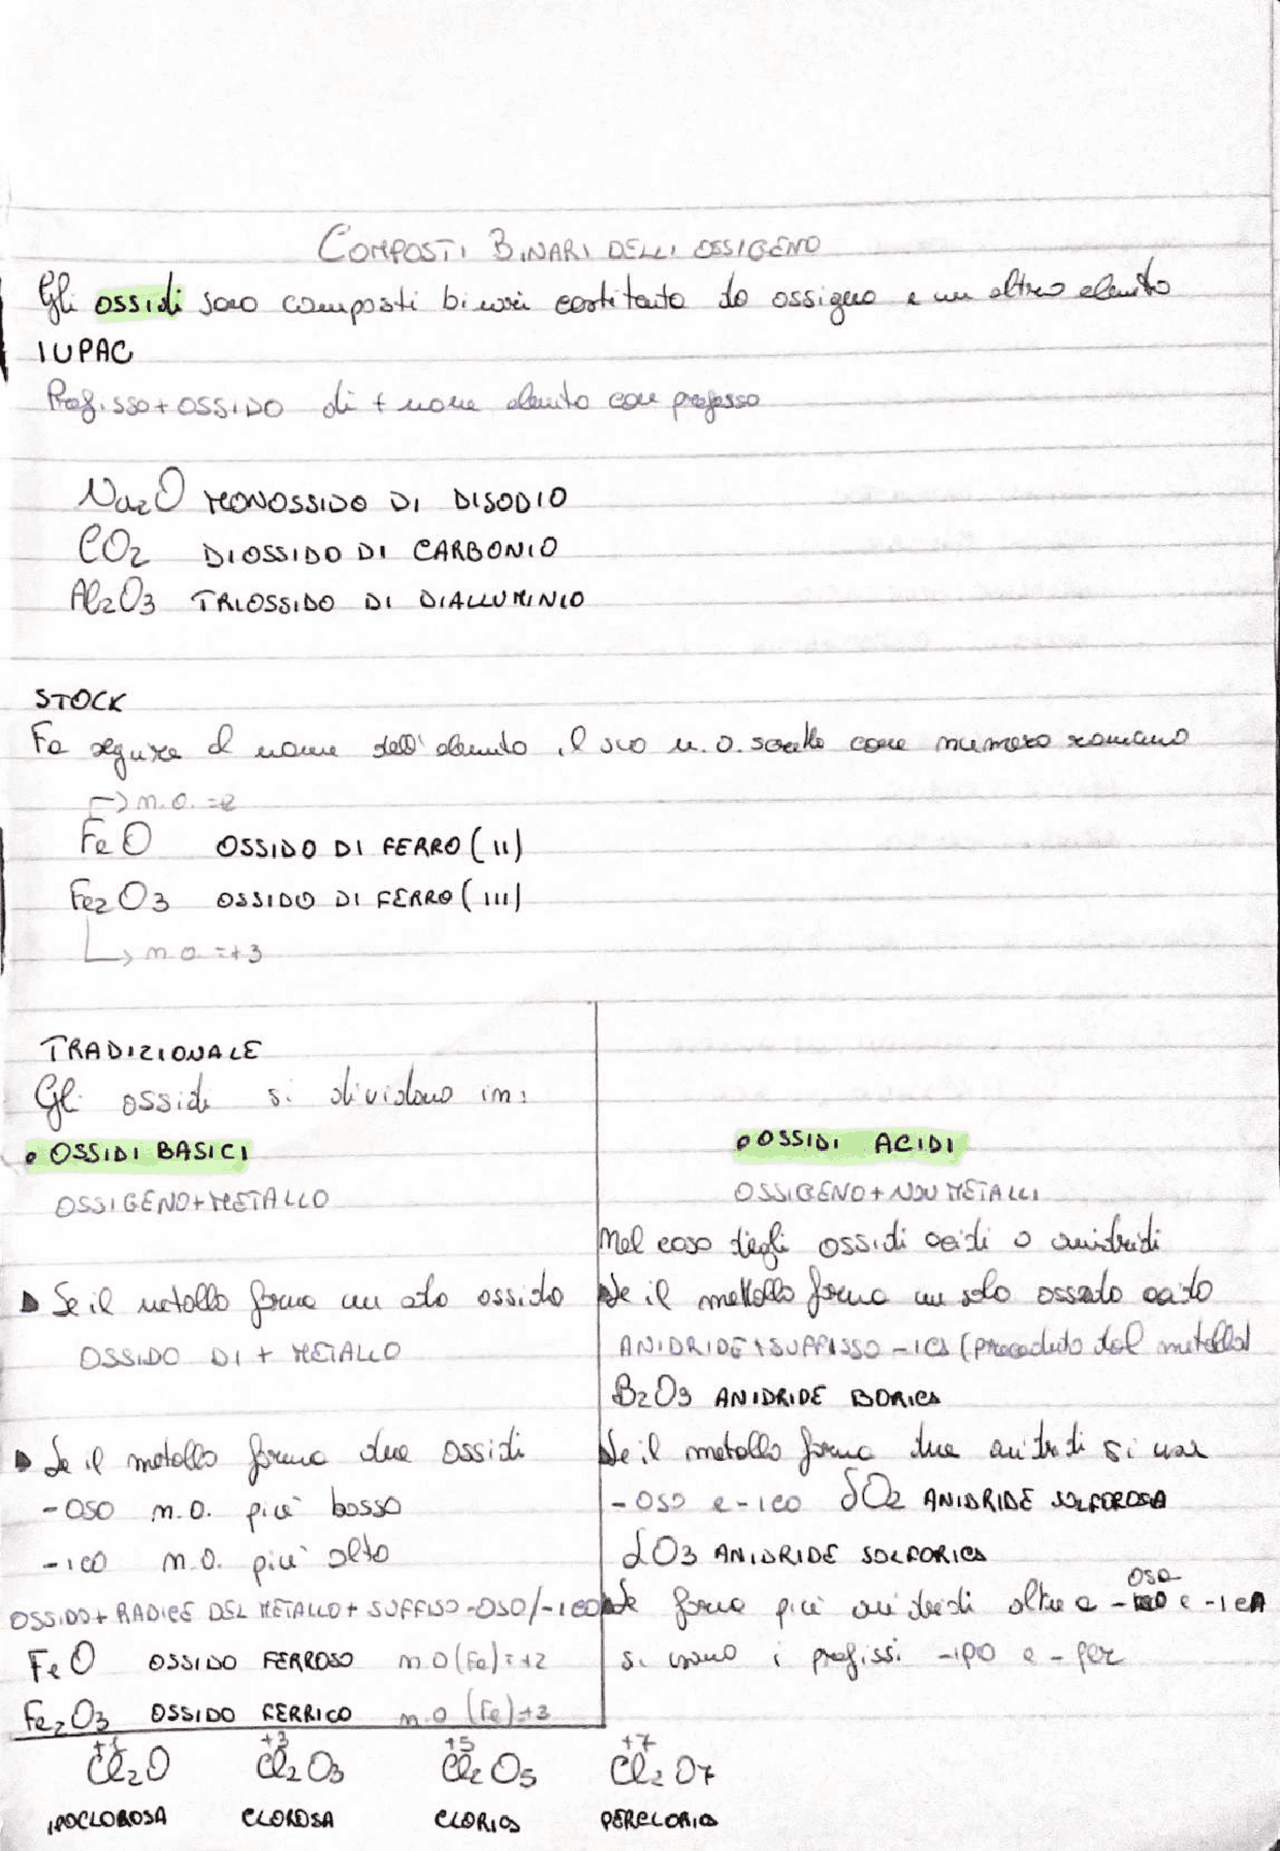 COMPOSTI BINARI DELL' OSSIGENO
Gli ossidi sono composti binari costituito da ossigeno e un altro elemento
IUPAC
Prefisso + OSSIDO di + nome elemento con prefisso
Na2O MONOSSIDO DI DISODIO
CO2 DIOSSIDO DI CARBONIO
Al2O3 TRIOSSIDO DI DIALLUMINIO
STOCK
Fa seguire il nome dell' elemento il suo n. o. scritto come numero romano
→ n.o. =2
FeO OSSIDO DI FERRO (II)
Fe2O3 OSSIDO DI FERRO (III)
→ n.o. =+3
TRADIZIONALE
Gli ossidi si dividono in:
• OSSIDI BASICI
OSSIGENO+METALLO
▶ Se il metallo forma un solo ossido
OSSIDO DI + METALLO
▶ Se il metallo forma due ossidi
-OSO n.o. più basso
-ICO n.o. più alto
OSSIDO + RADICE DEL METALLO + SUFFISO -OSO/-ICO
FeO OSSIDO FERROSO n.o (Fe)=+2
Fe2O3 OSSIDO FERRICO n.o (Fe)=+3
• OSSIDI ACIDI
OSSIGENO + NON METALLI
Nel caso degli ossidi acidi o anidridi
▶ Se il metallo forma un solo ossido acido
ANIDRIDE + SUFFISSO -ICA (preceduto dal metallo)
B2O3 ANIDRIDE BORICA
▶ Se il metallo forma due anidridi si usa
-OSO e -ICO SO2 ANIDRIDE SOLFOROSA
SO3 ANIDRIDE SOLFORICA
▶ Se forma più anidridi oltre a -OSA e -ICA
si usano i prefissi -IPO e -PER
+1 +3 +5 +7
Cl2O Cl2O3 Cl2O5 Cl2O7
IPOCLOROSA CLOROSA CLORICA PERCLORICA